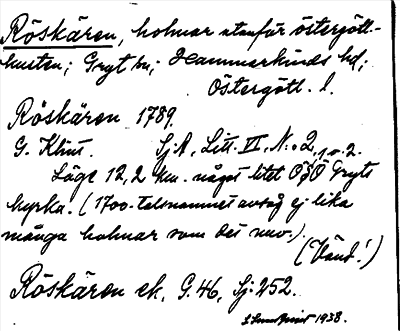 Röskären, holmar utanför östergött-
kusten; Gryt sn; Hammarkinds hd;
Östergötl. l.
Röskären 1789.
G. Klint. SjA, Litt. VI, N:o 2, 1 o. 2.
Läge 12,2 km. något litet OSO Gryts
kyrka. (1700-talsnamnet avsåg ej lika
många holmar som det nuv.).
(Vänd!)
Röskären ek, G. 46, Sj. 252.
1938.